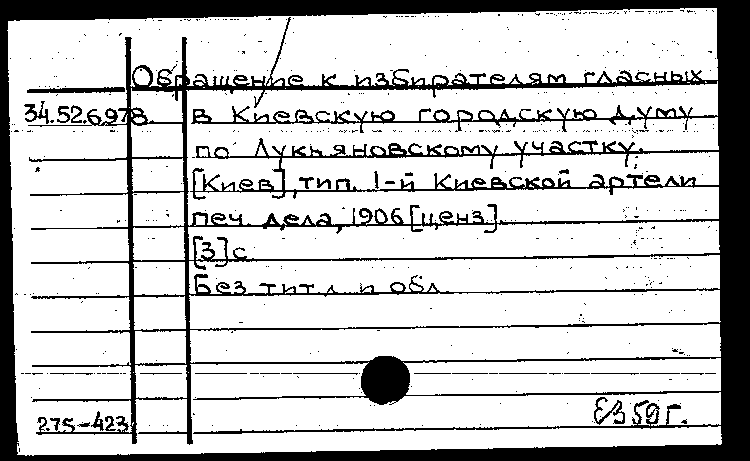 Обращение к избирателям гласных
34.52.6.978. в Киевскую городскую Думу
по Лукьяновскому участку.
[Киев], тип. 1-й Киевской артели
печ. дела, 1906 [ценз].
[3] с
Без тит. л и обл.
275-423